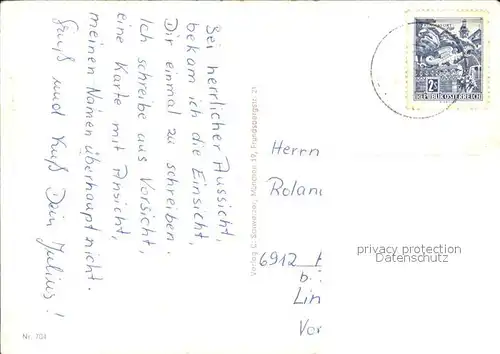 Bei herrlicher Aussicht,
bekam ich die Einsicht,
Dir einmal zu schreiben.
Ich schreibe aus Vorsicht,
eine Karte mit Ansicht,
meinen Namen überhaupt nicht.
Gruß und Kuß Dein Julius!
Nr. 704
2 S
REPUBLIK ÖSTERREICH
Herrn
Rolan
6912
b.
Lin
Vor
privacy protection
Datenschutz